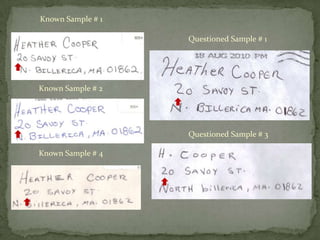 Known Sample # 1
HEATHER COOPER
20 SAVOY ST
N. BILLERICA, MA. 01862
Known Sample # 2
HEATHER COOPER
20 SAVOY ST
N. BILLERICA, MA. 01862
Known Sample # 4
HEATHER COOPER
20 SAVOY ST.
N. BILLERICA, MA. 01862
Questioned Sample # 1
18 AUG 2010 PM
HEATHER COOPER
20 SAVOY ST.
N. BILLERICA MA. 01862
Questioned Sample # 3
H. COOPER
20 SAVOY ST.
NORTH billerica, MA. 01862